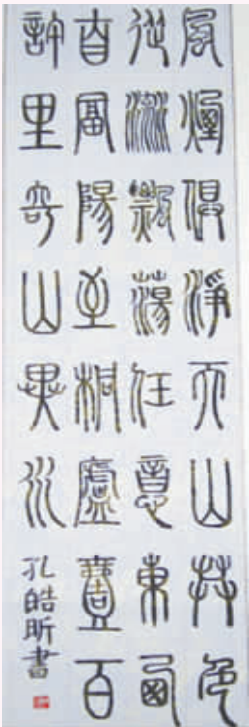 風煙俱淨天山共色
從流飄蕩任意東西
自富陽至桐廬壹百
許里奇山異水
孔皓昕書